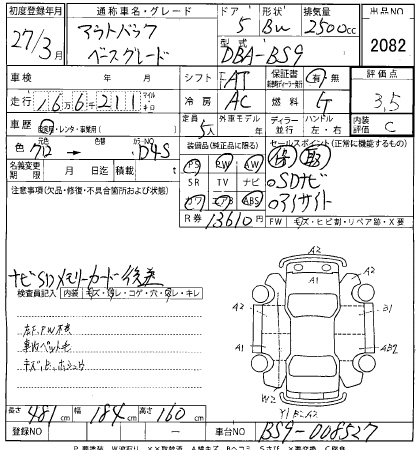 初度登録年月 通称車名・グレード ドア 形状 排気量 出品NO
27/3月 アウトバック ベースグレード 5 BW 2500cc 2082
型式 DBA-BS9
車検 年 月 日 シフト FAT 保証書 有 無 評価点
走行 16万6千211 冷房 AC 燃料 G 3.5
車歴 自家用・レンタ・事業用( ) 定員 5人 外車モデル 年 ディーラー 並行 ハンドル 左・右 内装評価 C
色 712 色替 カラーNO D4S 装備品(純正品に限る) セールスポイント(正常に機能するもの)
名義変更期限 月 日迄 積載 t PS PW AW 保 取
注意事項(欠品・修復・不具合箇所および状態) SR TV ナビ oSDナビ
カワ エアB ABS oアイサイト
R券 13610円 FW キズ・ヒビ割・リペア跡・X要
ナビSDメモリーカード後送
検査員記入 内装 キズ・汚レ・コゲ・穴・切レ・キレ
車内ペット毛
A2
A1
A2 B1
A1
W2
A2
長さ 481cm 幅 184cm 高さ 160cm
登録NO ー 車台NO BS9-008527